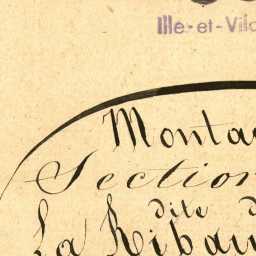 Ille-et-Vila
Montag
Section
dite d
La Ribau